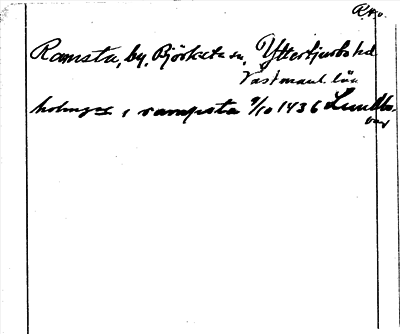 RAp.
Ramsta, by, Björksta sn, Yttertjurbo hd
Västmanl. län
holmger i rampsta 9/10 1436 Lundbo.